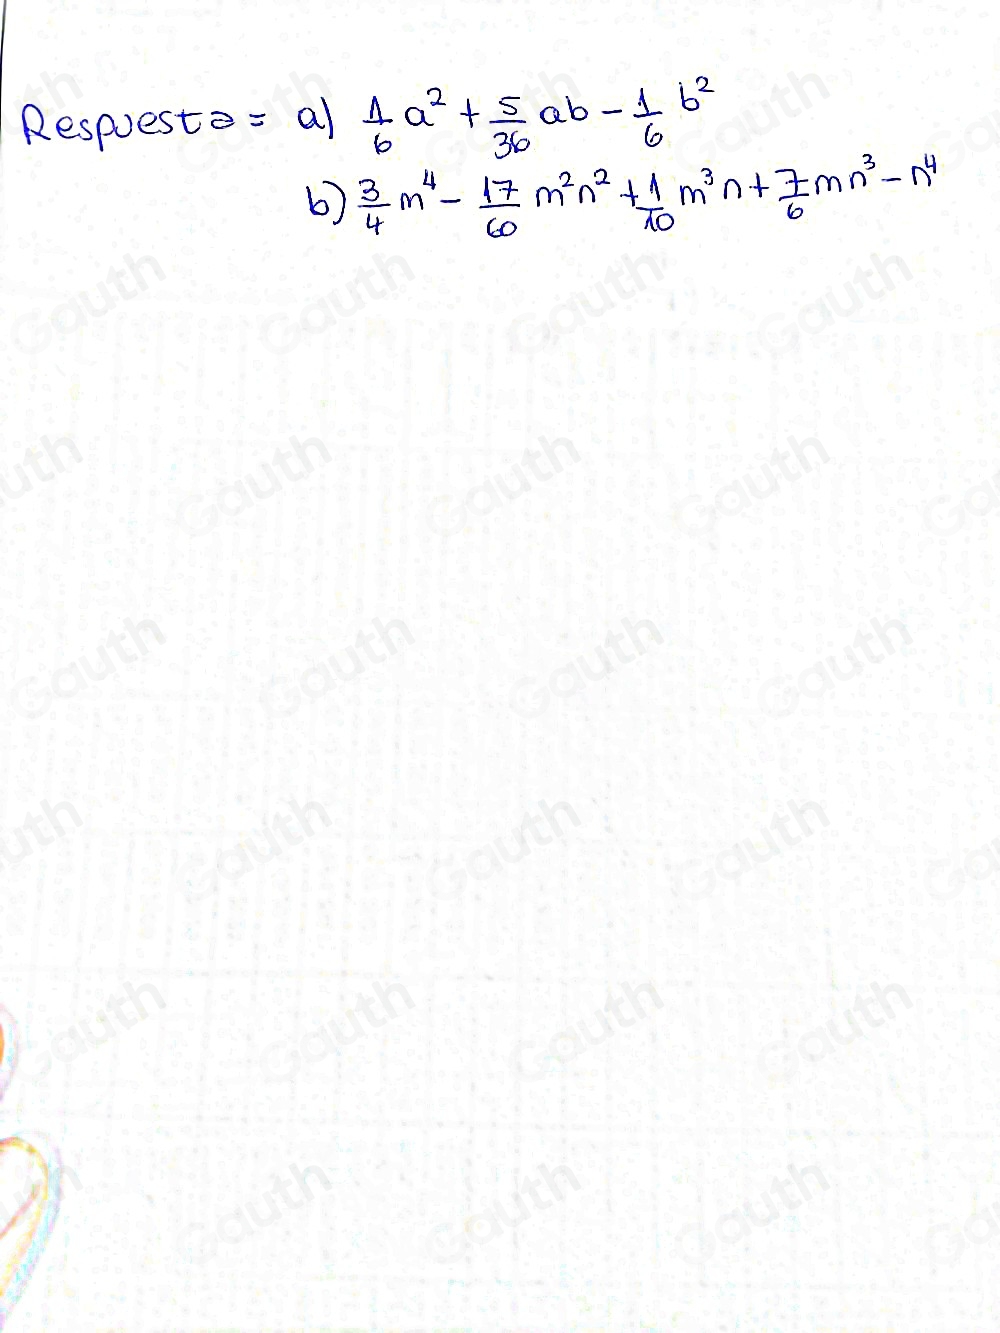 Respuesta = a) 1/6 a² + 5/36 ab - 1/6 b²
b) 3/4 m⁴ - 17/60 m²n² + 1/10 m³n + 7/6 mn³ - n⁴
Gauth